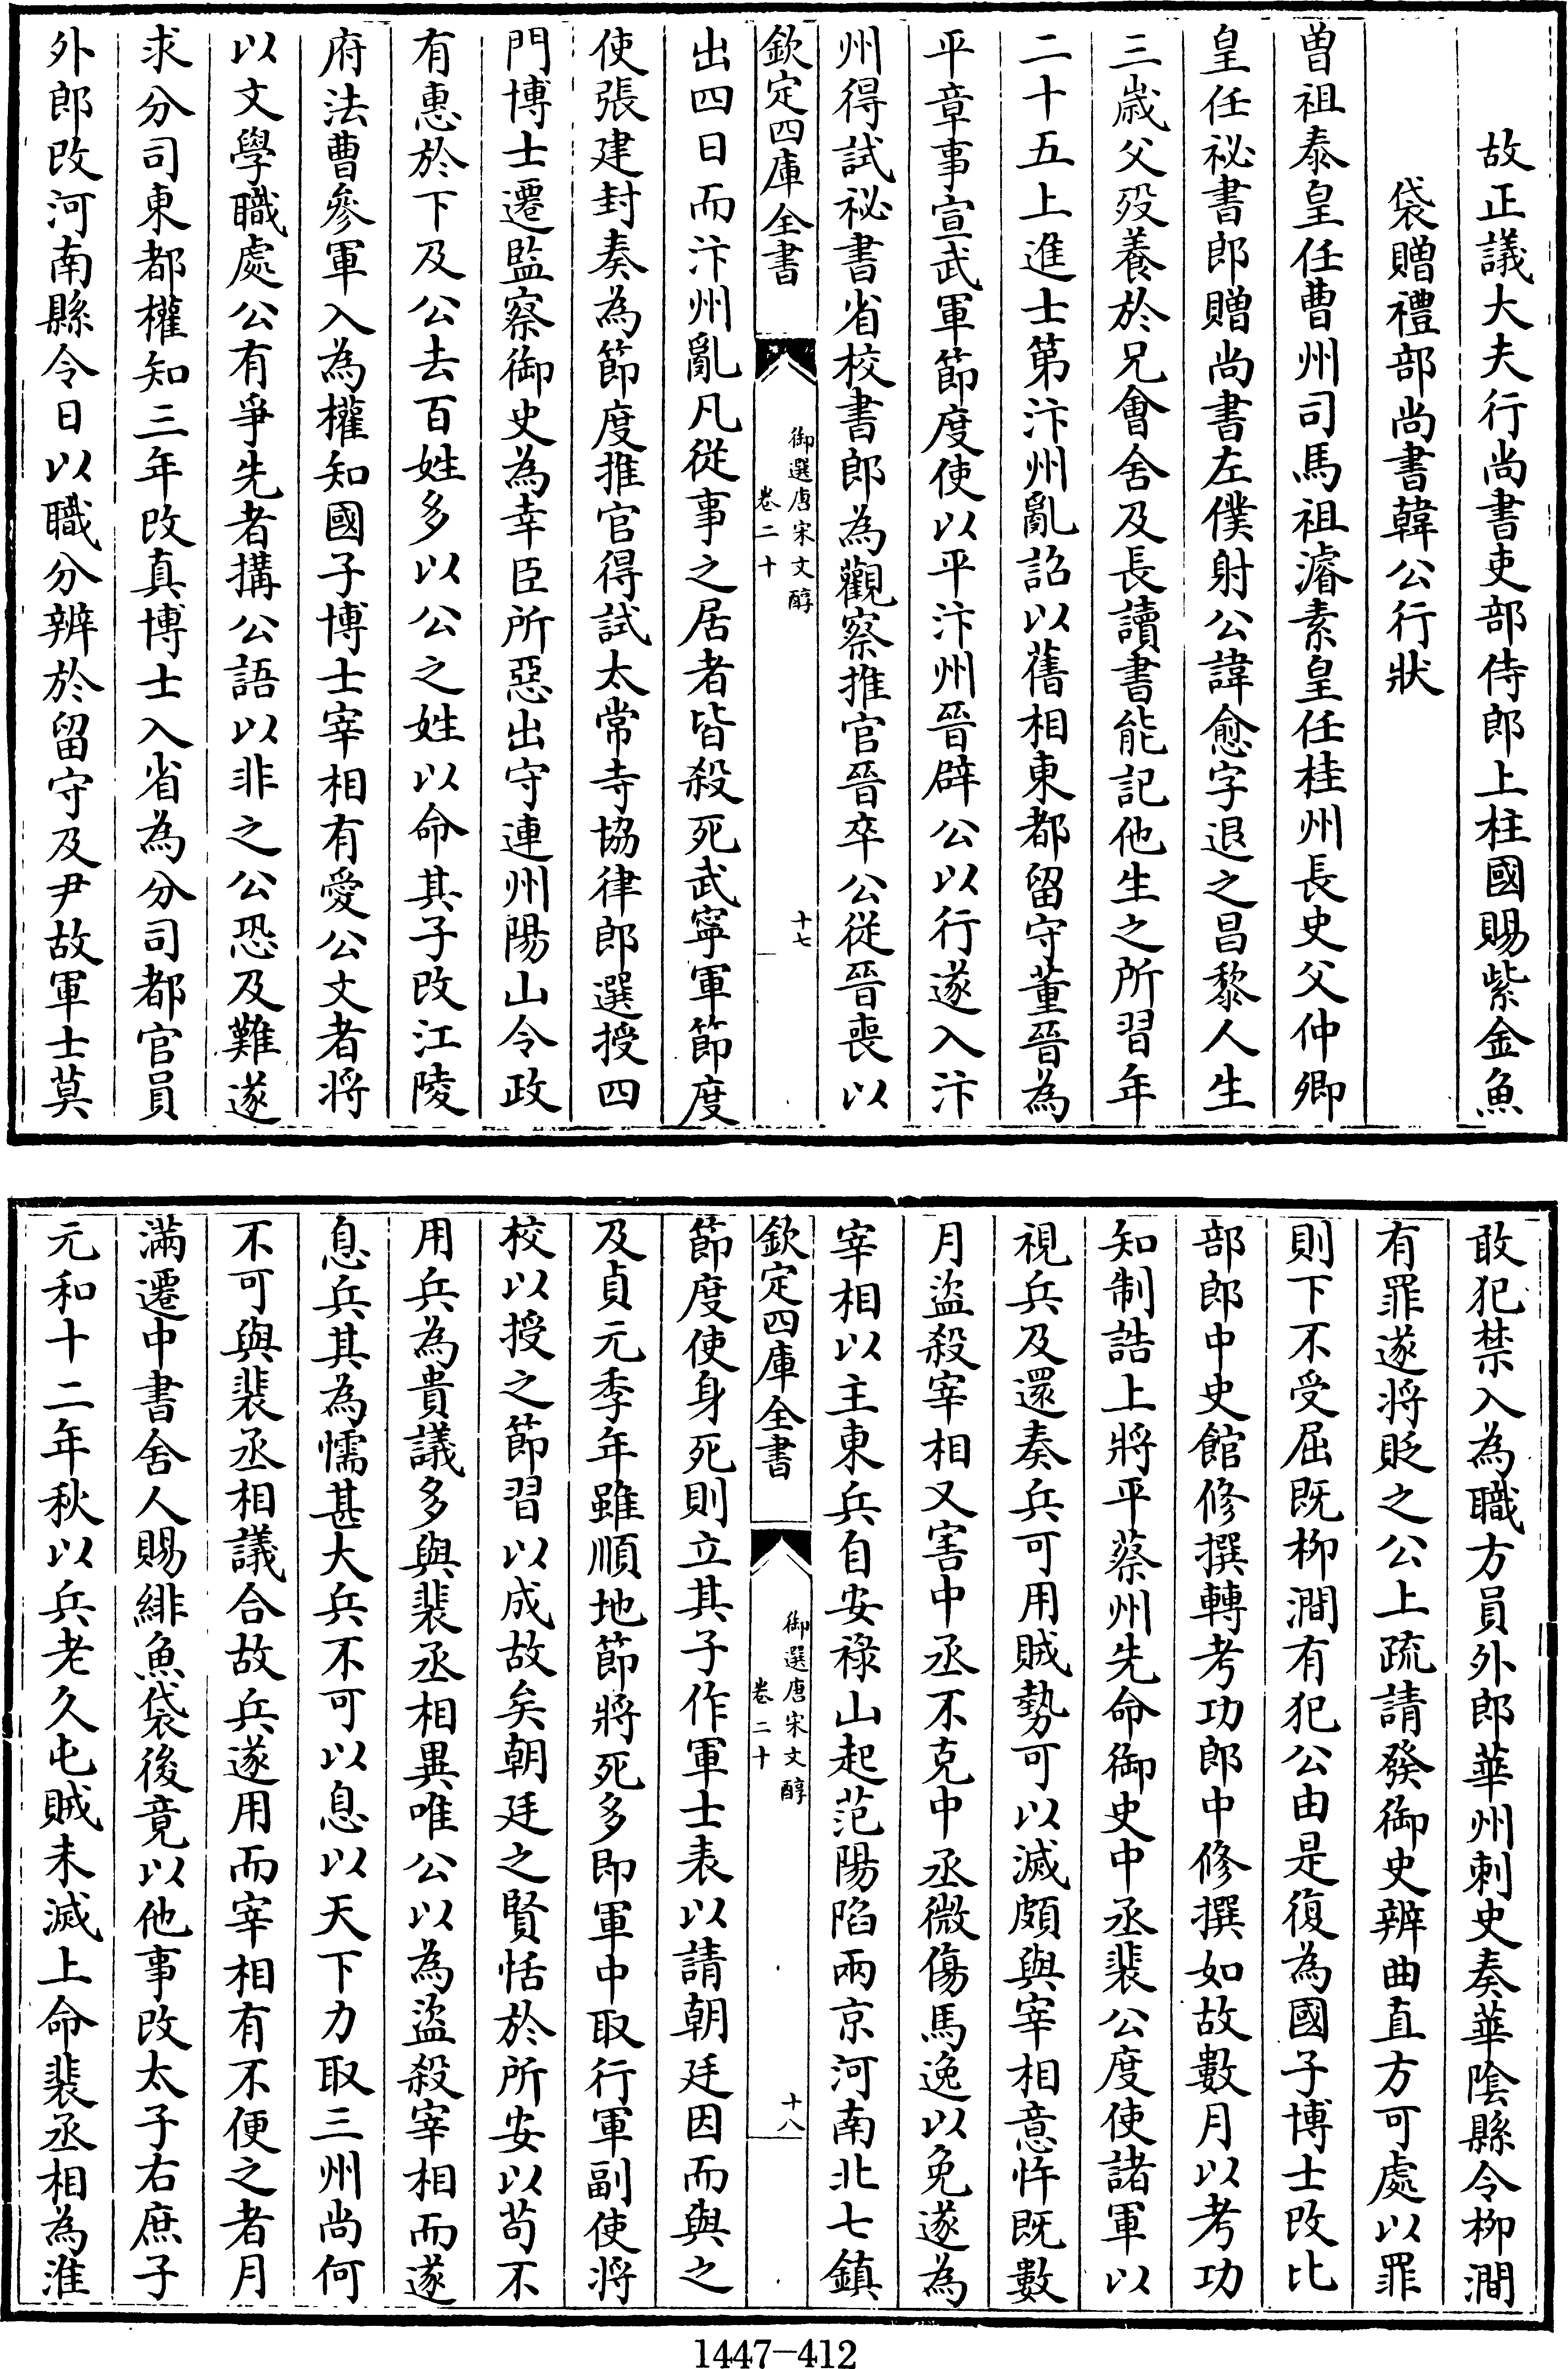 故正議大夫行尚書吏部侍郎上柱國賜紫金魚
袋贈禮部尚書韓公行狀
曾祖泰皇任曹州司馬祖濬素皇任桂州長史父仲卿
皇任祕書郎贈尚書左僕射公諱愈字退之昌黎人生
三歲父歿養於兄會舍及長讀書能記他生之所習年
二十五上進士第汴州亂詔以舊相東都留守董晉為
平章事宣武軍節度使以平汴州晉辟公以行遂入汴
州得試祕書省校書郎為觀察推官晉卒公從晉喪以
欽定四庫全書
御選唐宋文醇
卷二十
十七
出四日而汴州亂凡從事之居者皆殺死武寧軍節度
使張建封奏為節度推官得試太常寺協律郎選授四
門博士遷監察御史為幸臣所惡出守連州陽山令政
有惠於下及公去百姓多以公之姓以命其子改江陵
府法曹參軍入為權知國子博士宰相有愛公文者將
以文學職處公有爭先者搆公語以非之公恐及難遂
求分司東都權知三年改真博士入省為分司都官員
外郎改河南縣令日以職分辨於留守及尹故軍士莫
敢犯禁入為職方員外郎華州刺史奏華陰縣令柳澗
有罪遂將貶之公上疏請發御史辨曲直方可處以罪
則下不受屈既柳澗有犯公由是復為國子博士改比
部郎中史館修撰轉考功郎中修撰如故數月以考功
知制誥上將平蔡州先命御史中丞裴公度使諸軍以
視兵及還奏兵可用賊勢可以滅頗與宰相意忤既數
月盜殺宰相又害中丞不克中丞微傷馬逸以免遂為
宰相以主東兵自安祿山起范陽陷兩京河南北七鎮
欽定四庫全書
御選唐宋文醇
卷二十
十八
節度使身死則立其子作軍士表以請朝廷因而與之
及貞元季年雖順地節將死多即軍中取行軍副使將
校以授之節習以成故矣朝廷之賢恬於所安以苟不
用兵為貴議多與裴丞相異唯公以為盜殺宰相而遂
息兵其為懦甚大兵不可以息以天下力取三州尚何
不可與裴丞相議合故兵遂用而宰相有不便之者月
滿遷中書舍人賜緋魚袋後竟以他事改太子右庶子
元和十二年秋以兵老久屯賊未滅上命裴丞相為淮
1447-412